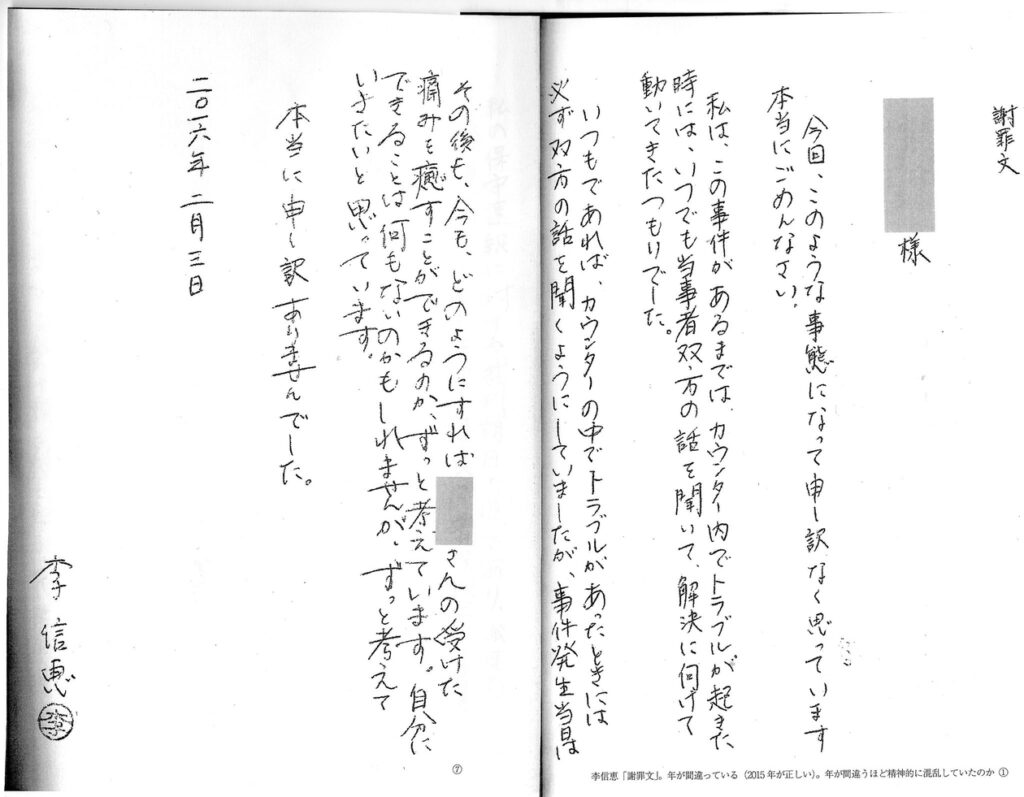 謝罪文
様
今回、このような事態になって申し訳なく思っています
本当にごめんなさい。
私は、この事件があるまでは、カウンター内でトラブルが起きた
時には、いつでも当事者双方の話を聞いて、解決に向けて
動いてきたつもりでした。
いつもであれば、カウンターの中でトラブルがあったときには
必ず双方の話を聞くようにしていましたが、事件発生当日は
李信恵「謝罪文」。年が間違っている（2015年が正しい）。年が間違うほど精神的に混乱していたのか ①
その後も、今も、どのようにすれば さんの受けた
痛みを癒すことができるのか、ずっと考えています。自分に
できることは何もないのかもしれませんが、ずっと考えて
いきたいと思っています。
本当に申し訳ありませんでした。
二〇一六年 二月三日
李信恵 李
⑦